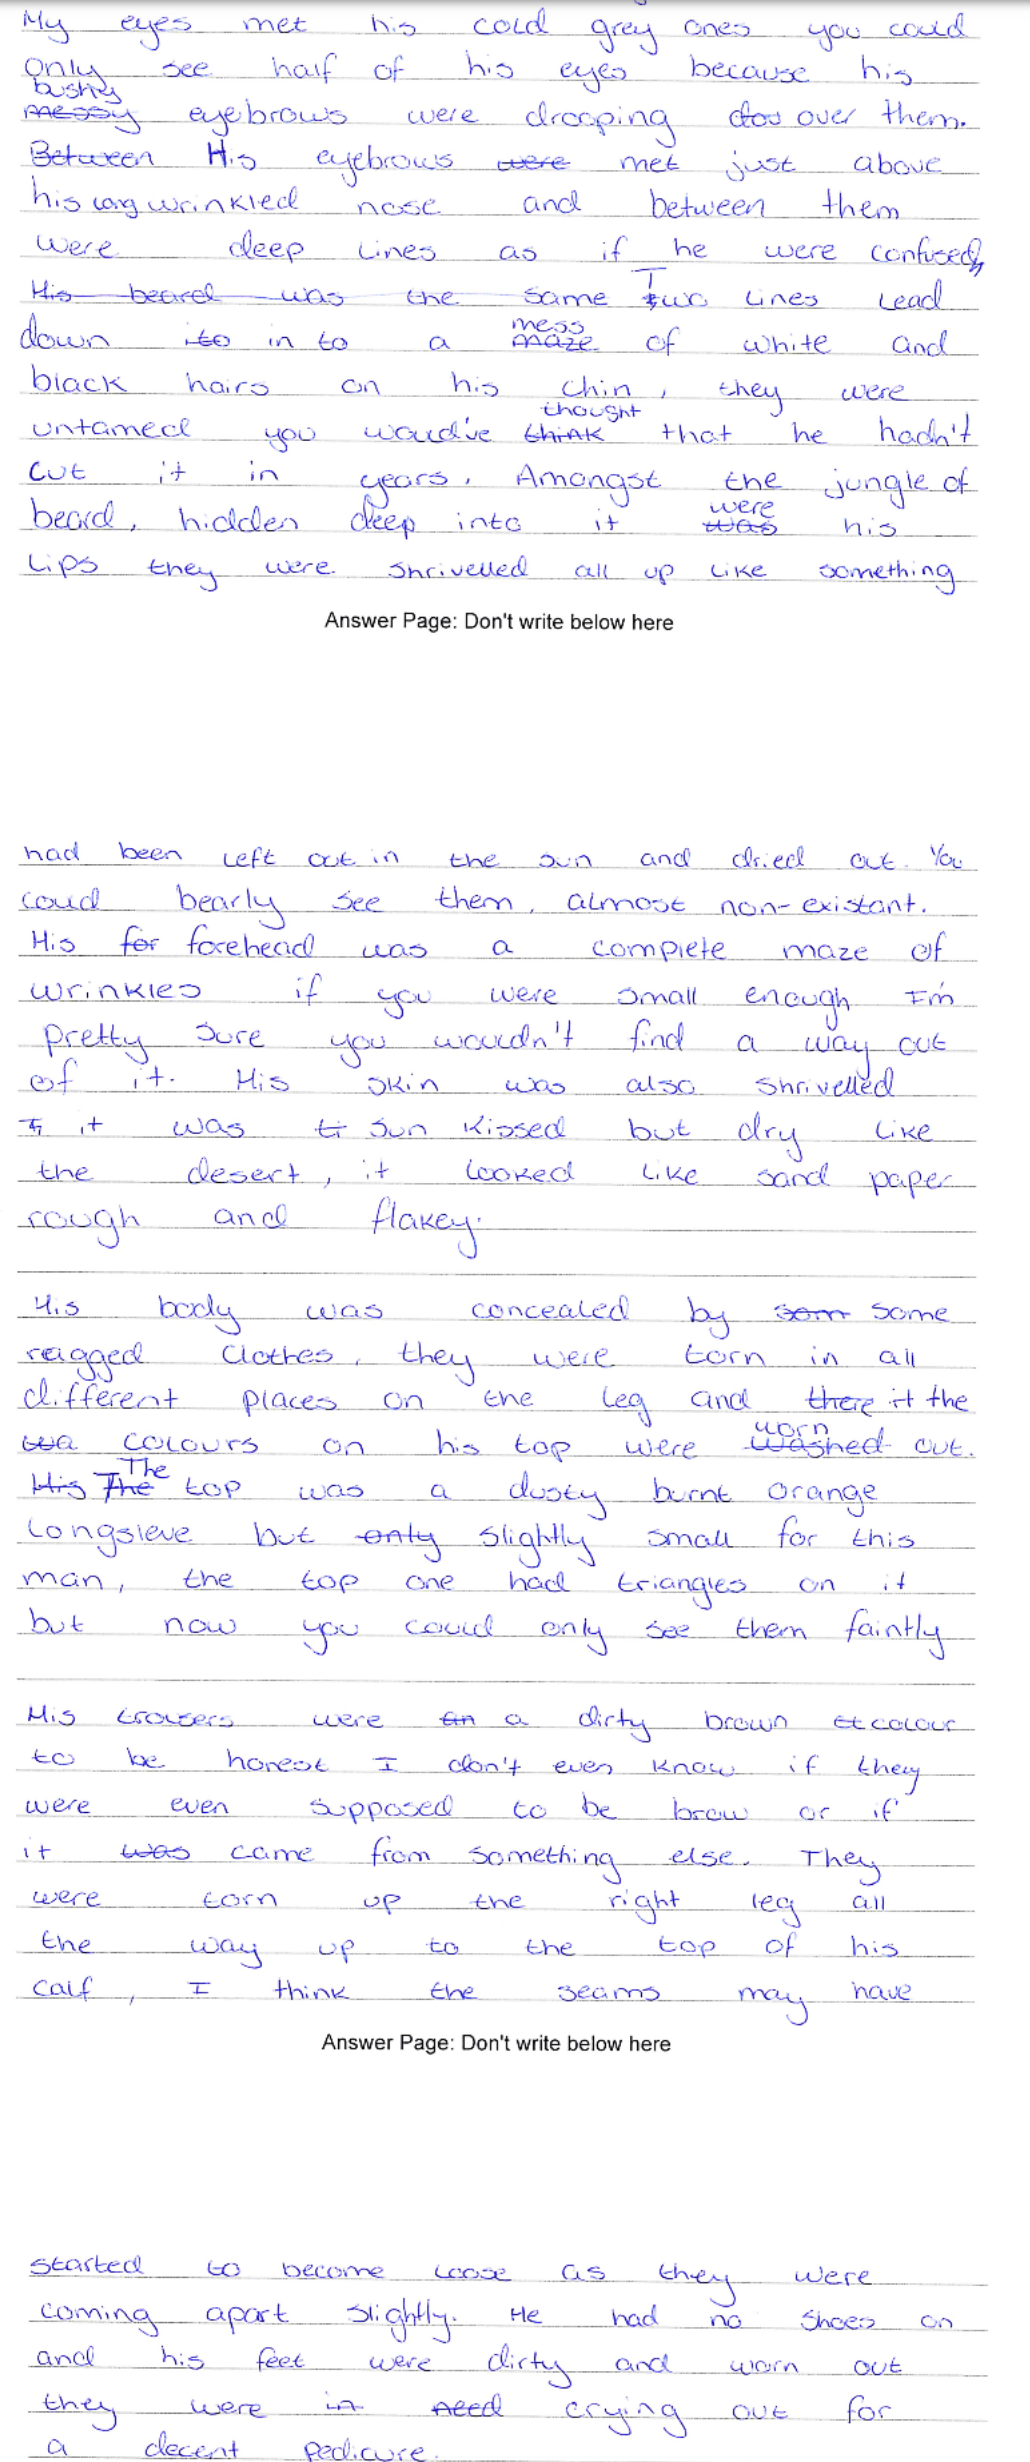 My eyes met his cold grey ones you could
only see half of his eyes because his
bushy
messy eyebrows were drooping over them.
Between His eyebrows were met just above
his long wrinkled nose and between them
were deep lines as if he were confused,
His beard was the same Two lines lead
down to in to a maze mess of white and
black hairs on his chin, they were
untamed you would've think thought that he hadn't
cut it in years. Amongst the jungle of
beard, hidden deep into it was were his
lips they were shrivelled all up like something
Answer Page: Don't write below here
had been left out in the sun and dried out. You
could bearly see them, almost non-existant.
His for forehead was a complete maze of
wrinkles if you were small enough I'm
pretty sure you wouldn't find a way out
of it. His skin was also shrivelled
it was sun kissed but dry like
the desert, it looked like sand paper
rough and flakey.
His body was concealed by som some
ragged clothes, they were torn in all
different places on the leg and there it the
wa colours on his top were washed worn out.
His The The top was a dusty burnt orange
longsleve but only slightly small for this
man, the top one had triangles on it
but now you could only see them faintly
His trousers were a dirty brown colour
to be honest I don't even know if they
were even supposed to be brow or if
it was came from something else. They
were torn up the right leg all
the way up to the top of his
calf, I think the seams may have
Answer Page: Don't write below here
started to become loose as they were
coming apart slightly. He had no shoes on
and his feet were dirty and worn out
they were in need crying out for
a decent pedicure.